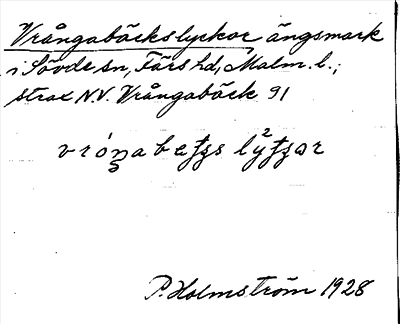 Vrångabäckslyckor ängsmark
i Sövde sn, Färs hd, Malm. l.;
strax N.V. Vrångabäck 91
P. Holmström 1928